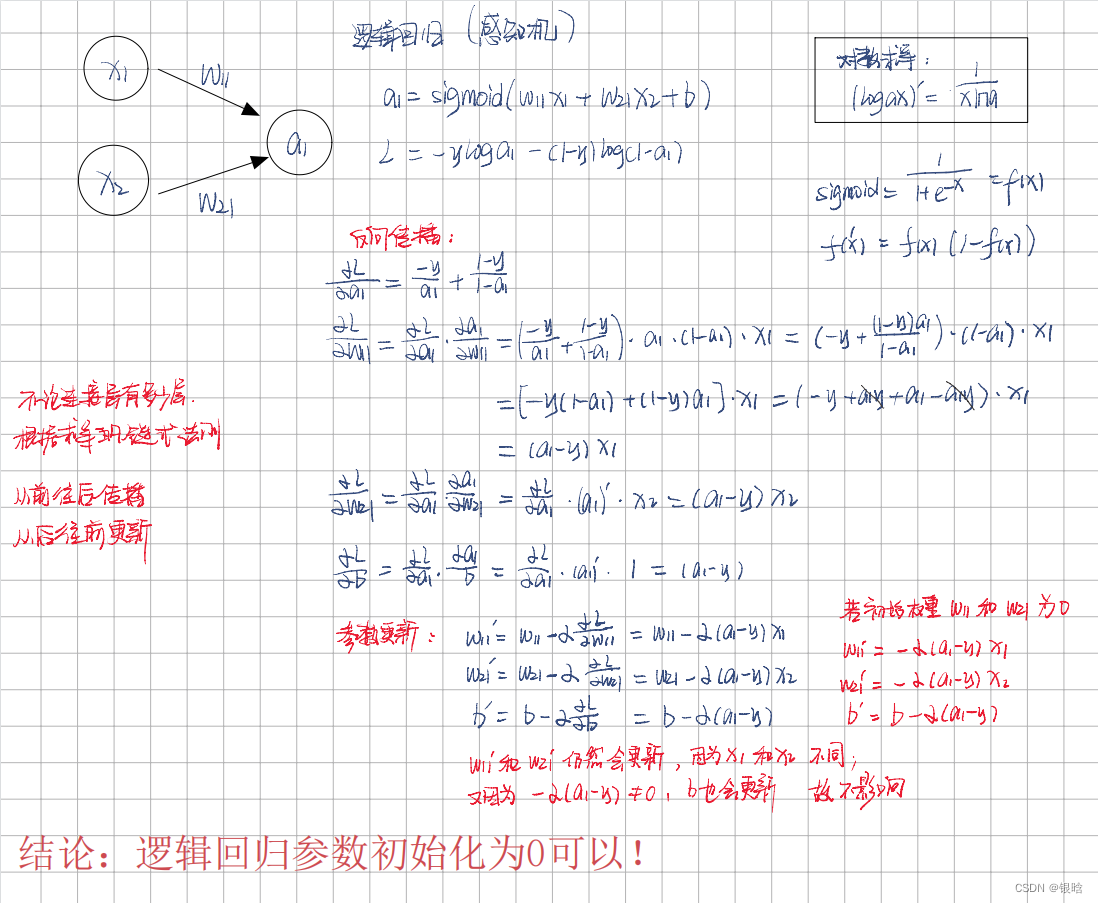 逻辑回归（感知机）
x1
w11
a1 = sigmoid(w11x1 + w21x2 + b)
对数求导：
(logax)' = 1/(xlna)
a1
L = -yloga1 - (1-y)log(1-a1)
x2
w21
sigmoid = 1/(1+e^-x) = f(x)
f(x)' = f(x)(1-f(x))
反向传播：
∂L/∂a1 = -y/a1 + (1-y)/(1-a1)
∂L/∂w11 = ∂L/∂a1 · ∂a1/∂w11 = (-y/a1 + (1-y)/(1-a1)) · a1 · (1-a1) · x1 = (-y + (1-y)a1/(1-a1)) · (1-a1) · x1
= [-y(1-a1) + (1-y)a1] · x1 = (-y + a1y + a1 - a1y) · x1
= (a1-y) x1
不论连接层有多少层.
根据求导的链式法则
从前往后传播
从后往前更新
∂L/∂w21 = ∂L/∂a1 · ∂a1/∂w21 = ∂L/∂a1 · (a1)' · x2 = (a1-y) x2
∂L/∂b = ∂L/∂a1 · ∂a1/b = ∂L/∂a1 · (a1)' · 1 = (a1-y)
参数更新：
w11' = w11 - α ∂L/∂w11 = w11 - α(a1-y) x1
w21' = w21 - α ∂L/∂w21 = w21 - α(a1-y) x2
b' = b - α ∂L/∂b = b - α(a1-y)
若初始权重 w11 和 w21 为0
w11' = -α(a1-y) x1
w21' = -α(a1-y) x2
b' = b - α(a1-y)
w11' 和 w21' 仍然会更新，因为 x1 和 x2 不同；
又因为 -α(a1-y) ≠ 0，b也会更新 故不影响
结论：逻辑回归参数初始化为0可以！
CSDN @银晗